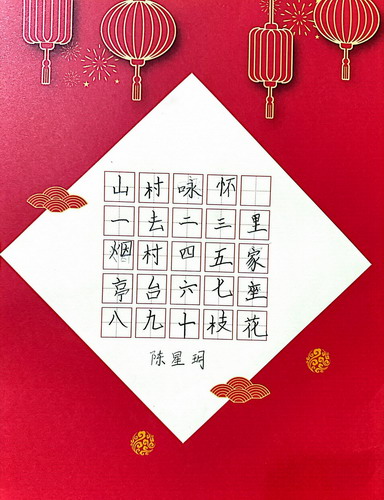 山村咏怀
一去二三里
烟村四五家
亭台六七座
八九十枝花
陈星玥